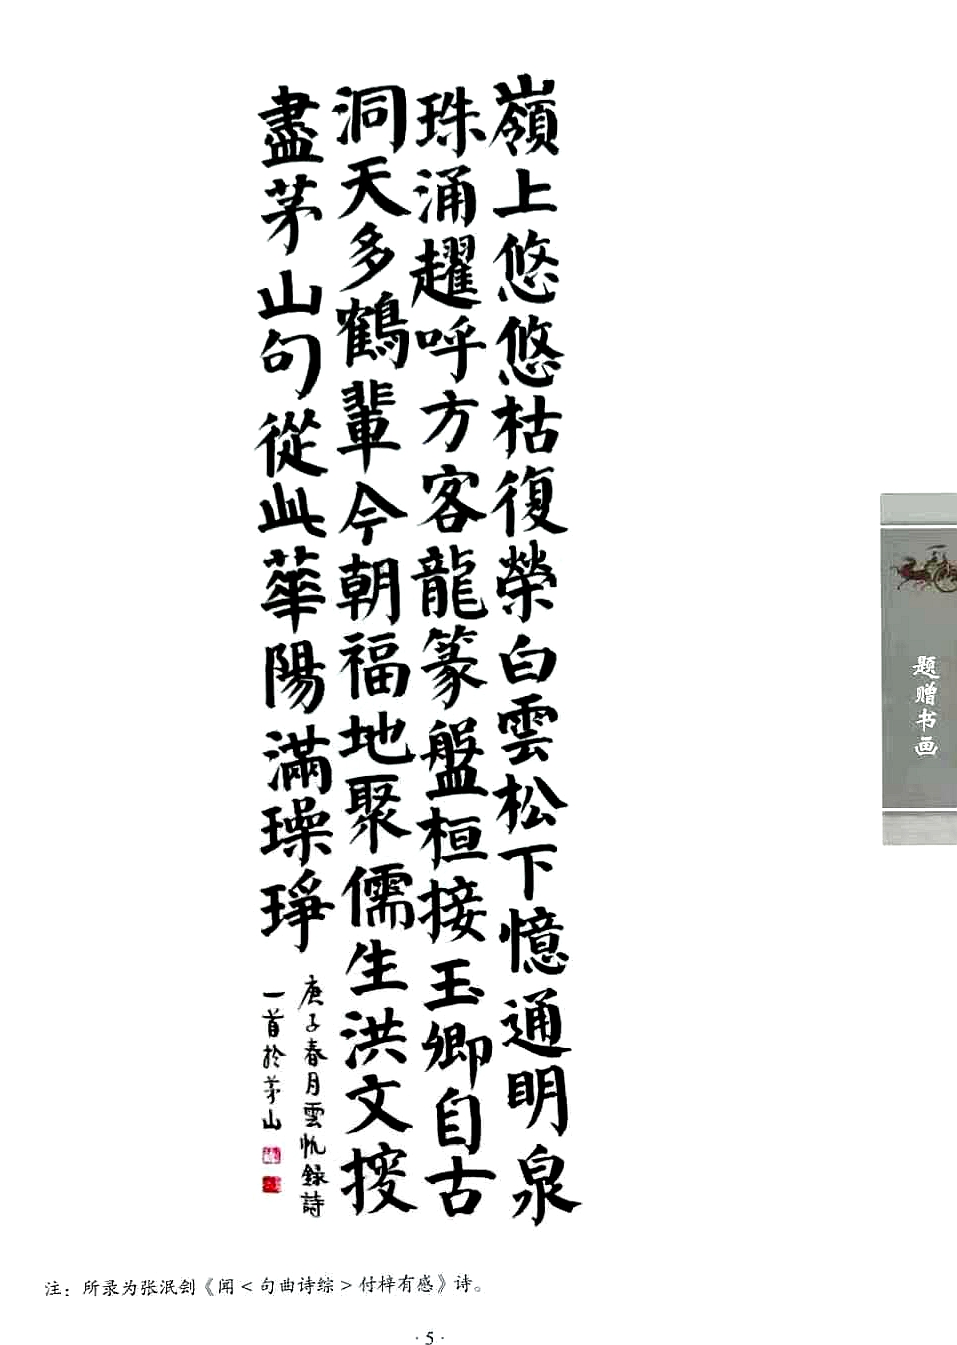 嶺上悠悠枯復榮白雲松下憶通明泉
珠涌趯呼方客龍篆盤桓接玉卿自古
洞天多鶴輩今朝福地聚儒生洪文搜
盡茅山句從此華陽滿璪琤
庚子春月雲帆録詩
一首於茅山
题赠书画
注：所录为张泯刽《闻<句曲诗综>付梓有感》诗。
·5·